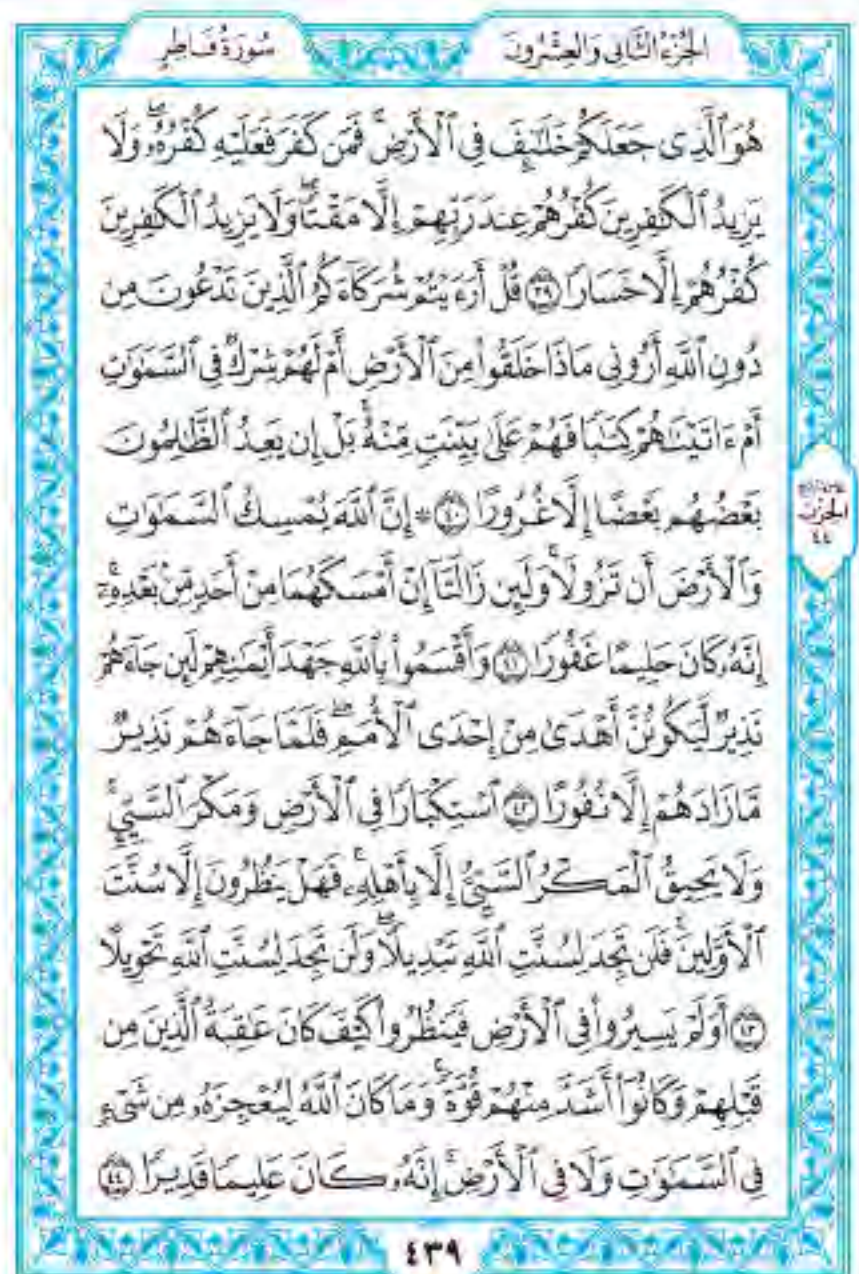 سُورَةُ فَاطِرٍ
الجُزْءُ الثَّانِي وَالعِشْرُونَ
هُوَ ٱلَّذِى جَعَلَكُمْ خَلَٰٓئِفَ فِى ٱلْأَرْضِ فَمَن كَفَرَ فَعَلَيْهِ كُفْرُهُۥ وَلَا
يَزِيدُ ٱلْكَٰفِرِينَ كُفْرُهُمْ عِندَ رَبِّهِمْ إِلَّا مَقْتًا وَلَا يَزِيدُ ٱلْكَٰفِرِينَ
كُفْرُهُمْ إِلَّا خَسَارًا ٣٩ قُلْ أَرَءَيْتُمْ شُرَكَآءَكُمُ ٱلَّذِينَ تَدْعُونَ مِن
دُونِ ٱللَّهِ أَرُونِى مَاذَا خَلَقُوا۟ مِنَ ٱلْأَرْضِ أَمْ لَهُمْ شِرْكٌ فِى ٱلسَّمَٰوَٰتِ
أَمْ ءَاتَيْنَٰهُمْ كِتَٰبًا فَهُمْ عَلَىٰ بَيِّنَتٍ مِّنْهُ بَلْ إِن يَعِدُ ٱلظَّٰلِمُونَ
بَعْضُهُم بَعْضًا إِلَّا غُرُورًا ٤٠ ۞ إِنَّ ٱللَّهَ يُمْسِكُ ٱلسَّمَٰوَٰتِ
وَٱلْأَرْضَ أَن تَزُولَا وَلَئِن زَالَتَآ إِنْ أَمْسَكَهُمَا مِنْ أَحَدٍ مِّنۢ بَعْدِهِۦٓ
إِنَّهُۥ كَانَ حَلِيمًا غَفُورًا ٤١ وَأَقْسَمُوا۟ بِٱللَّهِ جَهْدَ أَيْمَٰنِهِمْ لَئِن جَآءَهُمْ
نَذِيرٌ لَّيَكُونُنَّ أَهْدَىٰ مِنْ إِحْدَى ٱلْأُمَمِ فَلَمَّا جَآءَهُمْ نَذِيرٌ
مَّا زَادَهُمْ إِلَّا نُفُورًا ٤٢ ٱسْتِكْبَارًا فِى ٱلْأَرْضِ وَمَكْرَ ٱلسَّيِّئِ
وَلَا يَحِيقُ ٱلْمَكْرُ ٱلسَّيِّئُ إِلَّا بِأَهْلِهِۦ فَهَلْ يَنظُرُونَ إِلَّا سُنَّتَ
ٱلْأَوَّلِينَ فَلَن تَجِدَ لِسُنَّتِ ٱللَّهِ تَبْدِيلًا وَلَن تَجِدَ لِسُنَّتِ ٱللَّهِ تَحْوِيلًا
٤٣ أَوَلَمْ يَسِيرُوا۟ فِى ٱلْأَرْضِ فَيَنظُرُوا۟ كَيْفَ كَانَ عَٰقِبَةُ ٱلَّذِينَ مِن
قَبْلِهِمْ وَكَانُوٓا۟ أَشَدَّ مِنْهُمْ قُوَّةً وَمَا كَانَ ٱللَّهُ لِيُعْجِزَهُۥ مِن شَىْءٍ
فِى ٱلسَّمَٰوَٰتِ وَلَا فِى ٱلْأَرْضِ إِنَّهُۥ كَانَ عَلِيمًا قَدِيرًا ٤٤
الحِزْبُ
٤٤
٤٣٩